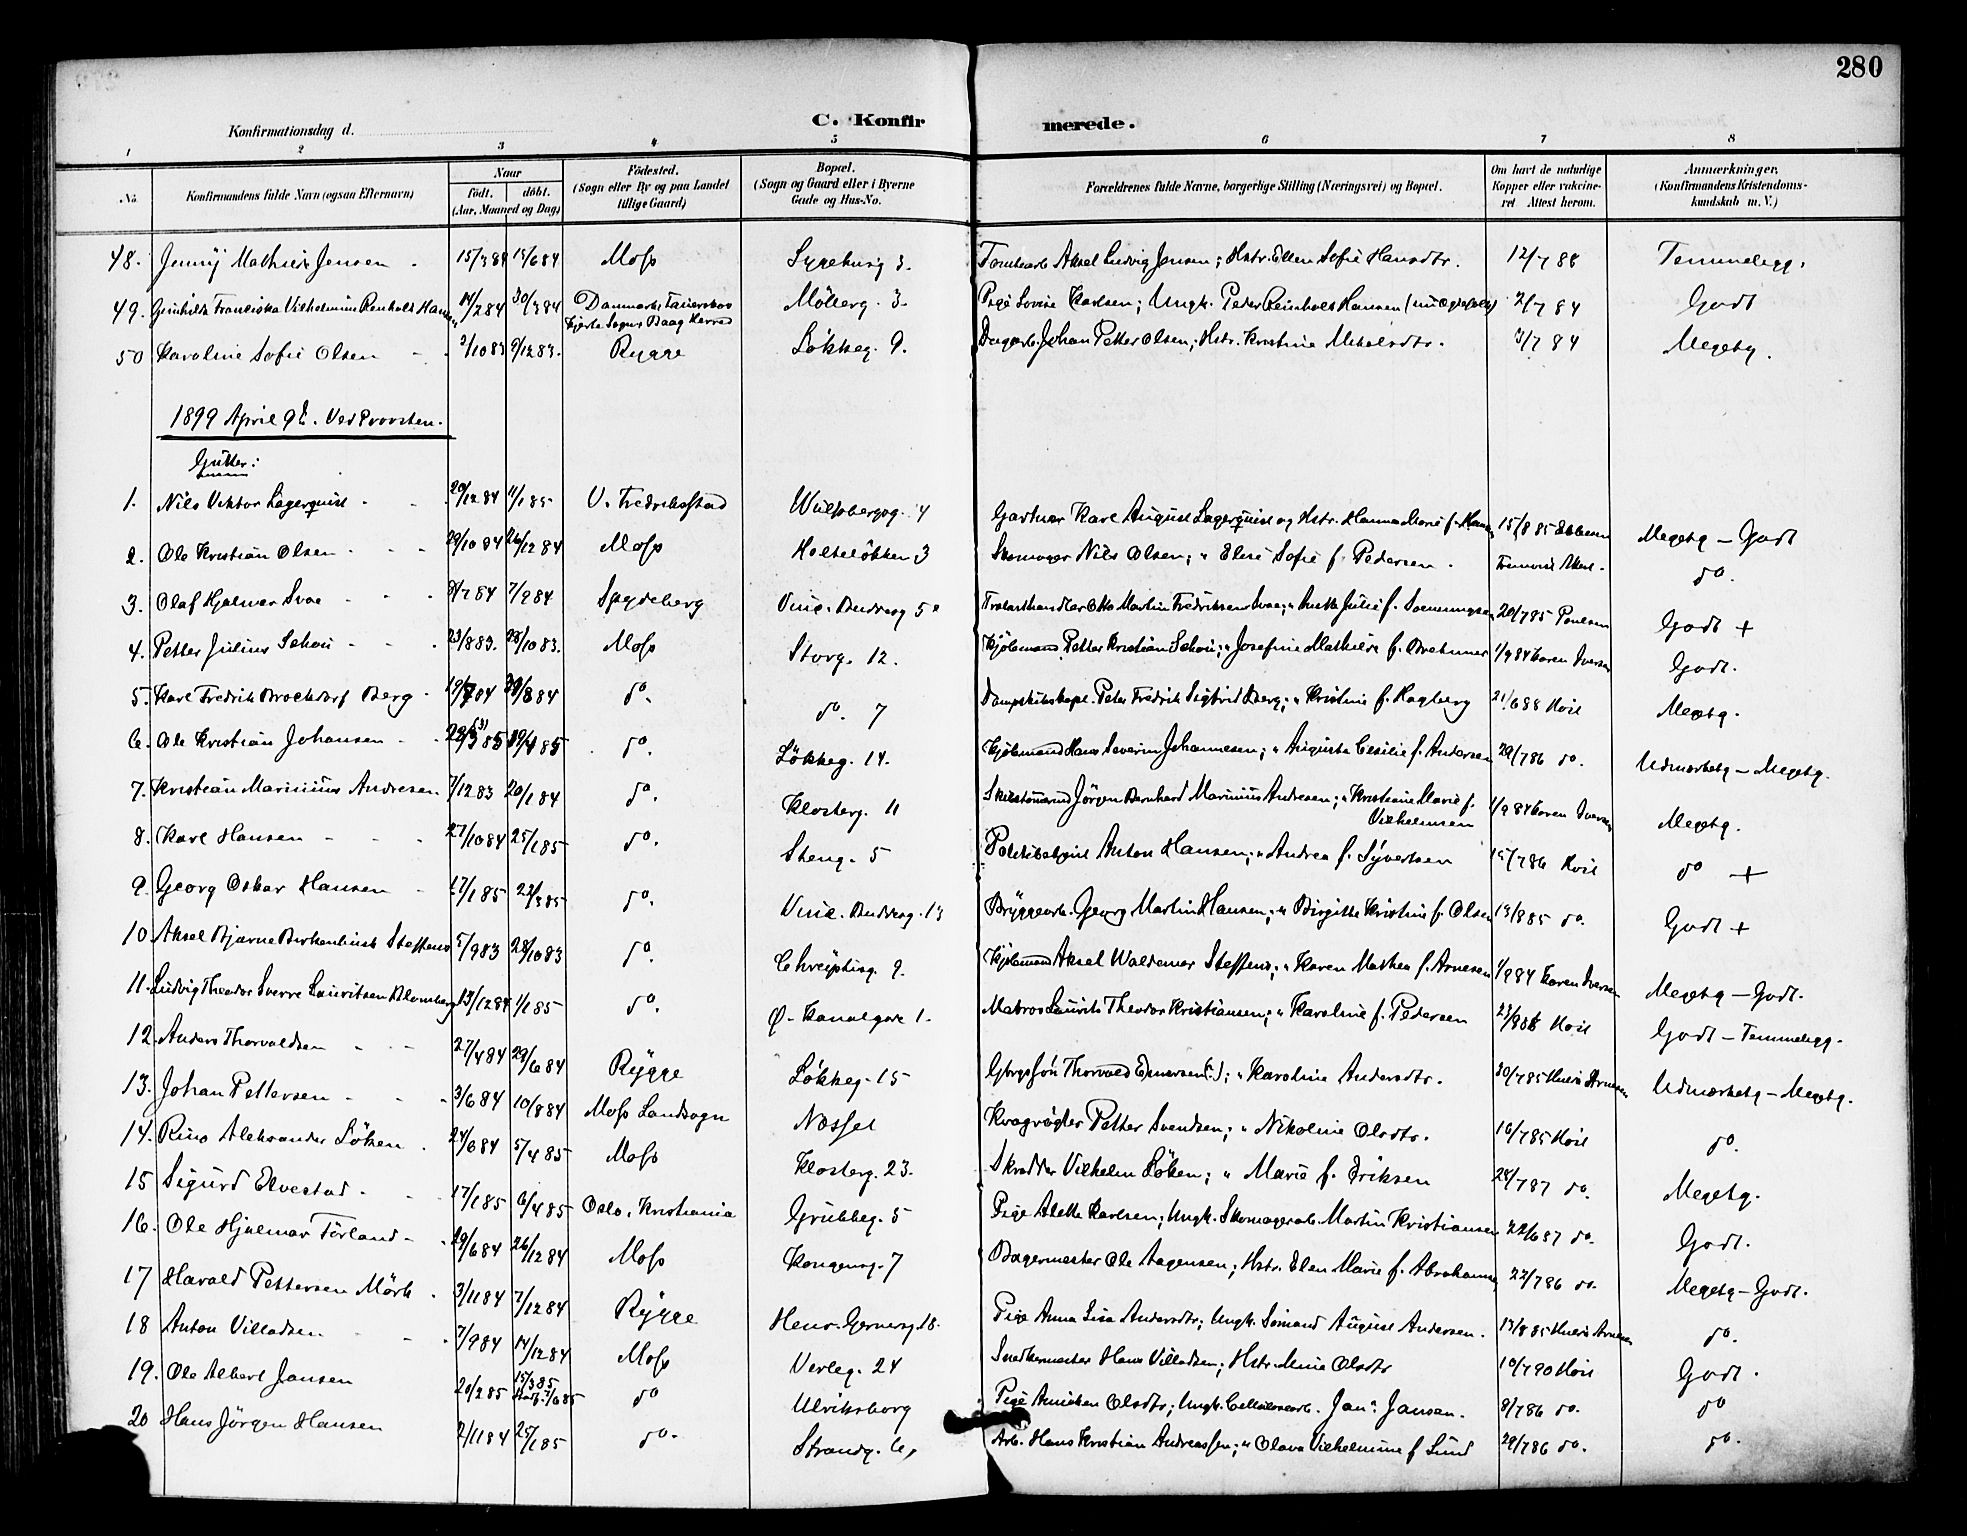 280
C. Konfir merede.
Konfirmationsdag d.
1 2 3 4 5 6 7 8
No. Konfirmandens fulde Navn (ogsaa Efternavn) Naar født. døbt. (Aar, Maaned og Dag) Fødested. (Sogn eller By og paa Landet tillige Gaard) Bopæl. (Sogn og Gaard eller i Byerne Gade og Hus-No. Forældrenes fulde Navne, borgerlige Stilling (Næringsvei) og Bopæl. Om havt de naturlige Kopper eller vakcineret Attest herom. Anmærkninger, (Konfirmandens Kristendomskundskab m. V.)
48. Jenny Mathies Jensen 15/3 84 15/6 84 Moss Sygehusg 3. Tomtearb Aksel Ludvig Jensen; Hstr. Ellen Sofie Hansdtr. 12/7 88 Temmeligg.
49. Gunhilda Franciska Vilhelmine Renholdt Hansen 14/2 84 30/3 84 Danmark, Kjerte Sogn Baag Herred Mølleg. 3. Pige Lovise Karlsen; Ungk. Peder Reinholdt Hansen 2/7 84 Godt
50 Karoline Sofie Olsen 2/10 83 9/12 83. Rygge Løkkeg. 9. Dagarb. Johan Petter Olsen; Hstr. Kristine Mikelsdtr. 3/7 84 Megetg.
1899 April 9de. Ved Provsten.
Gutter:
1. Nils Viktor Lagerquist 29/12 84 11/1 85 V. Fredrikstad Wulfsbergsg. 4 Gartner Karl August Lagerquist og Hstr. Hanna Marie f. Hansen 15/8 85 Ebbesen Megetg – Godt
2. Ole Kristian Olsen 29/10 84 26/12 84 Moss Holteløkken 3 Skomager Nils Olsen; " Elise Sofie f. Pedersen. do.
3. Olaf Hjalmar Svae 7/9 84 Spydeberg Vinc. Buddesg 5 Trælasthandler Otto Martin Fredriksen Svae; " Julie f. 20/7 85 Poulsen Godt +
4. Petter Julius Schou 23/8 83. 28/10 83. Moss Storg. 12. Kjøbmand Petter Kristian Schou; " Josefine Mathilde f. 1/9 84 Karen Iversen Godt.
5. Karl Fredrik Brockdorf Berg 19/7 84 do. do. 7 Dampskibskapt. Peter Fredrik Sigfrid Berg; " Kristine f. Hagberg 21/6 88 Koil Megetg.
6. Ole Kristian Johansen do. Løkkeg. 14. Kjøbmand Hans Severin Johannesen; " Augusta Cesilie f. Andersen 29/7 86 do. Udmærketg – Megetg.
7. Kristian Marinius Andresen 7/12 83 20/1 84 do. Klosterg. 11 Skibstømmermd Jørgen Bernhard Marinius Andresen; " Kristiane Marie f. Vilhelmsen 1/9 84 Karen Iversen Megetg.
8. Karl Hansen 27/10 84 25/1 85 do. Steng. 5 Politibetjent Anton Hansen; " Andrea f. Syvertsen 15/7 86 Koil do +
9. Georg Oskar Hansen 17/1 85 22/3 85 do. Vinc. Buddesg. 13 Bryggearb. Georg Martin Hansen; " Birgitte Kristine f. Olsen 13/8 85 do. Godt +
10. Aksel Bjarne Birkenbusk Steffens 5/9 83 28/10 83 do. Chrystieg. 9. Kjøbmand Aksel Waldemar Steffens; " Karen Mathea f. Arnesen 1/9 84 Karen Iversen Megetg – Godt.
11. Ludvig Theodor Sverre Lauritsen Blomberg 13/12 84 1/1 85 do. Ø. Kanalgade 1. Matros Laurits Theodor Kristiansen; " Karoline f. Pedersen Koil Godt – Temmeligg.
12. Anders Thorvaldsen 27/4 84 29/6 84 Rygge Løkkeg. 15 Gbrgssøn Thorvald Enersen (?); " Karoline Andersdtr. 30/7 85 Arnesen Udmærketg – Megetg.
13. Johan Pettersen 3/6 84 10/8 84 Moss Landsogn Nosset Kvægrøgter Petter Svendsen; " Nikoline Olsdtr. 16/7 85 Koil do.
14. Rino Aleksander Løken 24/6 84 5/4 85 Moss Klosterg. 23. Skrædder Vilhelm Løken; " Marie f. Eriksen 24/7 87 do. Megetg.
15 Sigurd Elvestad 17/1 85 6/4 85 Oslo, Kristiania Grubbeg. 5 Pige Alette Karlsen; Ungk. Skomagerarb. Martin Kristiansen 22/6 87 do. Godt.
16. Ole Hjalmar Førland 29/6 84 26/12 84 Moss Kongensg. 7 Bagermester Ole Aagensen; Hstr. Elen Marie f. Abrahamsen 22/7 86 do. Megetg – Godt.
17 Harald Pettersen Mørk 3/11 84 7/12 84 Rygge Henr. Gernersg. 18. Pige Anna Lisa Andersdtr; Ungk. Sømand August Andersen. 13/8 85 Arnesen do.
18 Anton Villadsen 7/9 84 14/12 84 Moss Verleg. 24 Snedkermester Hans Villadsen; Hstr. Mina Olsdtr 10/7 90 Koil Godt.
19. Ole Albert Jansen 20/2 85 15/3 85 Stadf. 7/6 85 do Ulriksborg Pige Anniken Olsdtr; Ungk. Cellulosearb. Jan Jansen. 8/7 86 do. do
20 Hans Jørgen Hansen 2/11 84 25/1 85 do. Strandg. 6, Arb. Hans Kristian Andreassen; " Olava Vilhelmine f Lund 29/7 86 do. do.